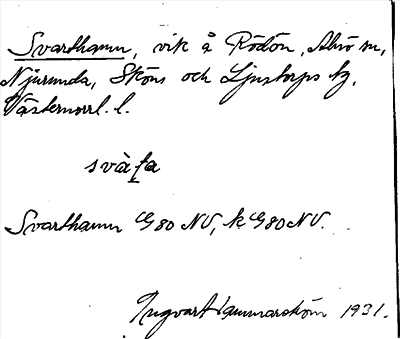 Svarthamn, vik å Rödön, Alnö sn,
Njurunda, Sköns och Ljustorps tg,
Västernorrl. l.
svàṭa
Svarthamn G80 NV, k G80 NV.
Ingvar Hammarström 1931.